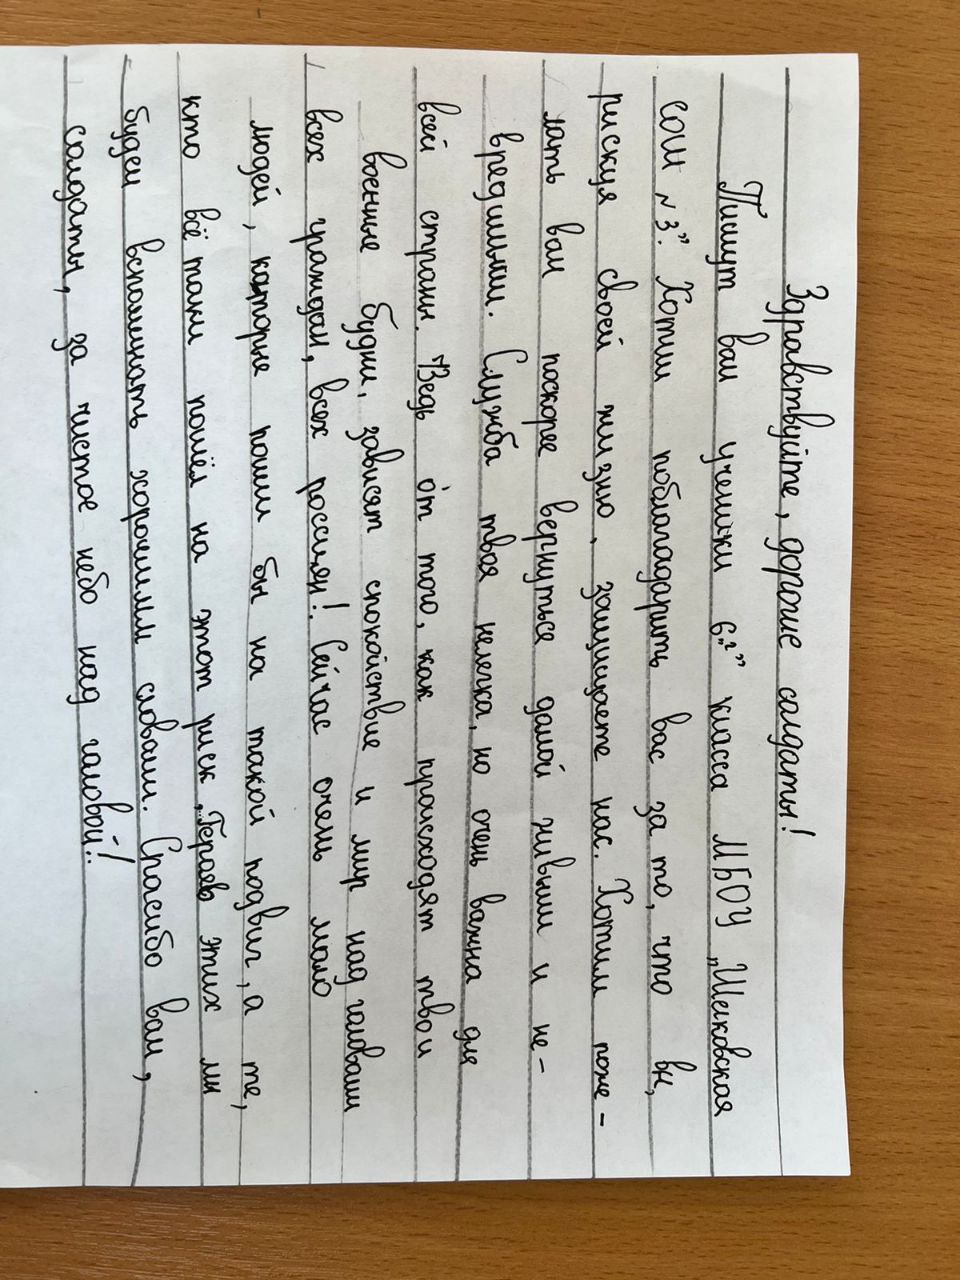 Здравствуйте, дорогие солдаты!
Пишут вам ученики 6"г" класса МБОУ „Шелковская
СОШ „№3". Хотим поблагадарить вас за то, что вы,
рискуя своей жизнью, защищаете нас. Хотим поже-
лать вам поскорее вернуться домой живыми и не-
вредимыми. Служба твоя нелегка, но очень важна для
всей страны. Ведь от того, как происходят твои
военные будни, зависят спокойствие и мир над головами
всех граждан, всех россиян! Сейчас очень мало
людей, которые пошли бы на такой подвиг, а те,
кто всё таки пошёл на этот риск „Героев этих мы
будем вспоминать хорошими словами. Спасибо вам,
солдаты, за чистое небо над головой!!